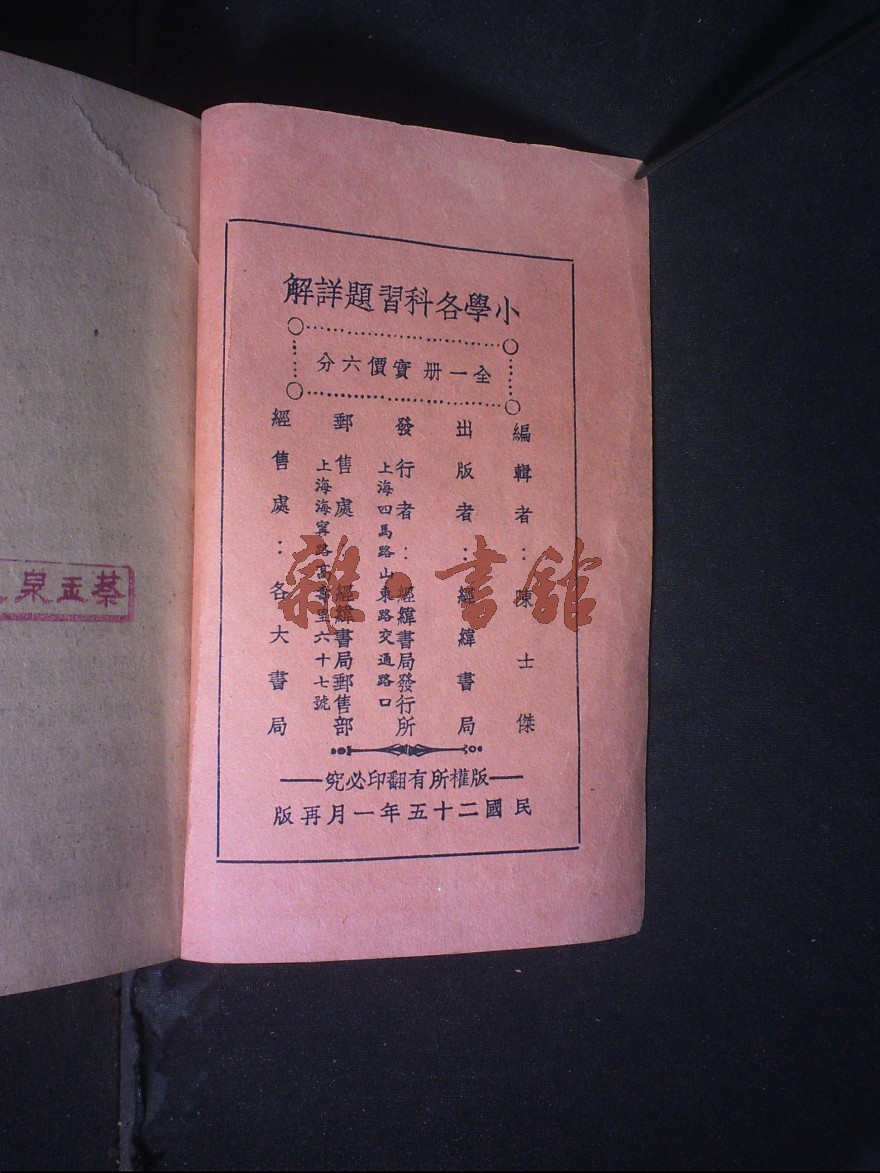 小學各科習題詳解
全一册實價六分
編輯者：陳士傑
出版者：經緯書局
發行者：經緯書局發行所
上海四馬路山東路交通路口
郵售處：經緯書局郵售部
上海海寧路高壽里六十七號
經售處：各大書局
版權所有翻印必究
民國二十五年一月再版
雜·書館
蔡玉泉